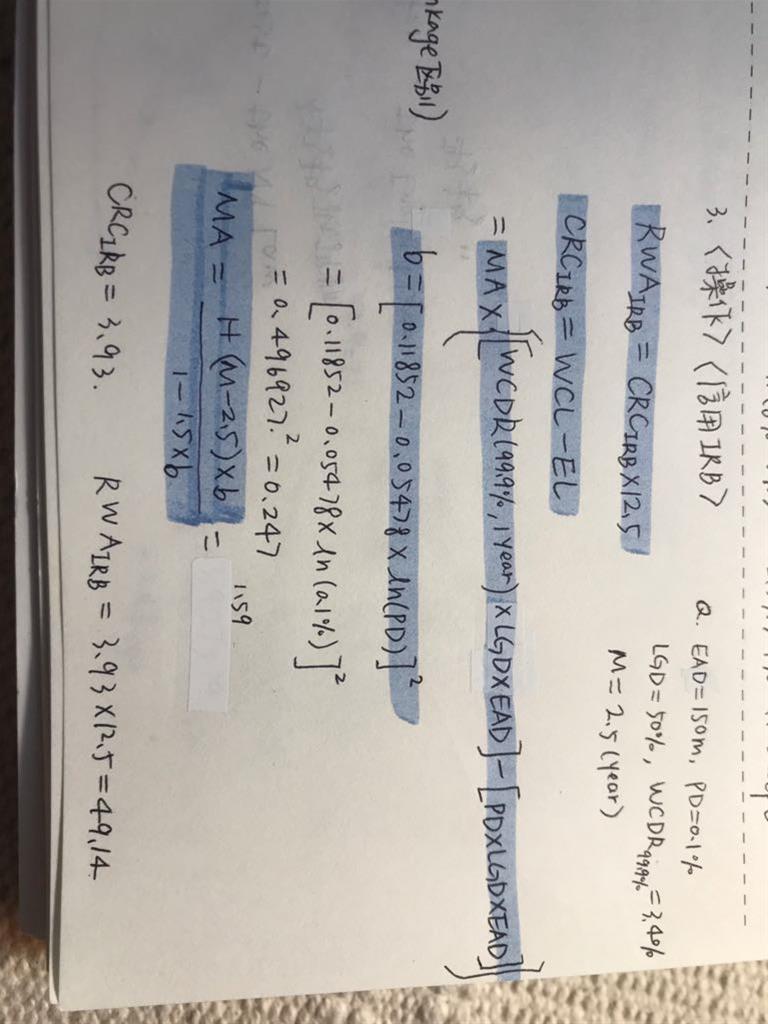 3. <操作> <信用IRB>
Q. EAD=150m, PD=0.1%
LGD=50%, WCDR99.9%=3.4%
M=2.5(year)
RWAIRB = CRCIRB×12.5
CRCIRB = WCL-EL
= MAX·{[WCDR(99.9%, 1year)×LGD×EAD]-[PD×LGD×EAD]}
b=[0.11852-0.05478×ln(PD)]²
=[0.11852-0.05478×ln(0.1%)]²
=0.496927.²=0.247
MA = 1+(M-2.5)×b / 1-1.5×b = 1.59
CRCIRB = 3.93. RWAIRB = 3.93×12.5=49.14